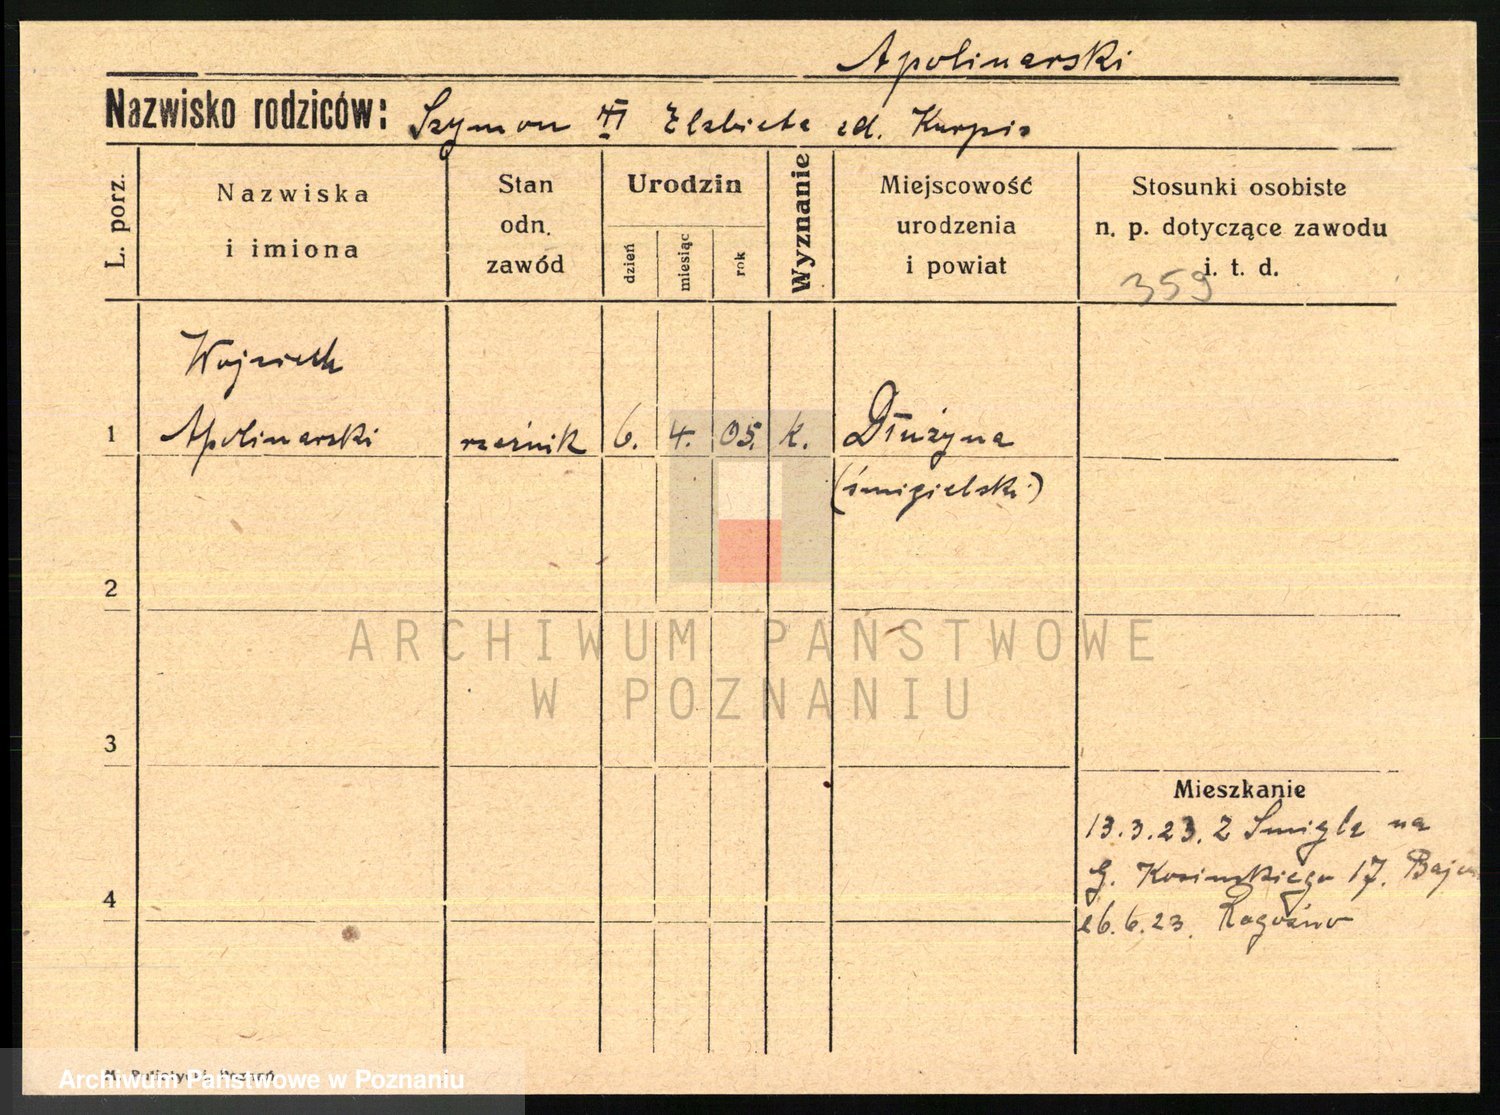 Apolinarski
Nazwisko rodziców: Szymon III Elzbieta zd. Kurpis
L. porz.
Nazwiska
i imiona
Stan
odn.
zawód
Urodzin
dzień
miesiąc
rok
Wyznanie
Miejscowość
urodzenia
i powiat
Stosunki osobiste
n. p. dotyczące zawodu
i. t. d.
359
Wojciech
1 Apolinarski rzeźnik 6. 4. 05. k. Dłużyna
(śmigielski)
2
3
4
Mieszkanie
13.3.23. Z Smigla na
G. Kosinskiego 17.
26.6.23. Rogoźno
ARCHIWUM PAŃSTWOWE
W POZNANIU
Archiwum Państwowe w Poznaniu